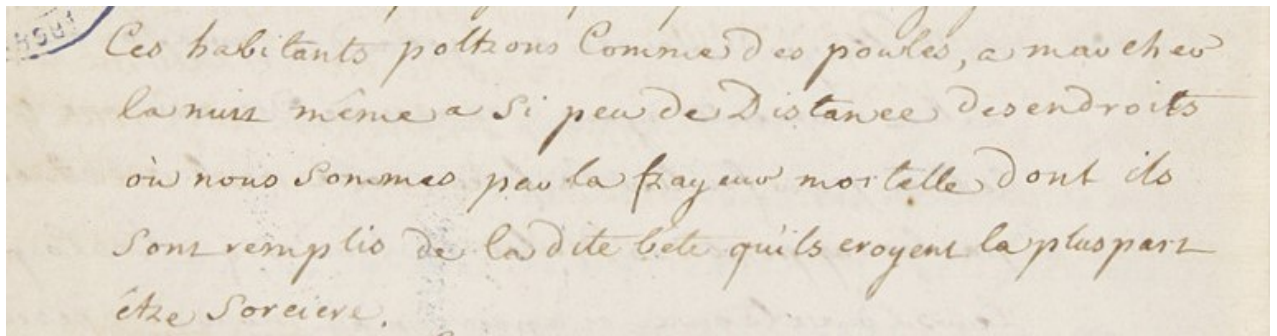 Ces habitants poltrons Comme des poules, a marcher
la nuit même a Si peu de Distance des endroits
où nous Sommes par la frayeur mortelle dont ils
Sont remplis de la dite bête qu'ils croyent la pluspart
être Sorciere.